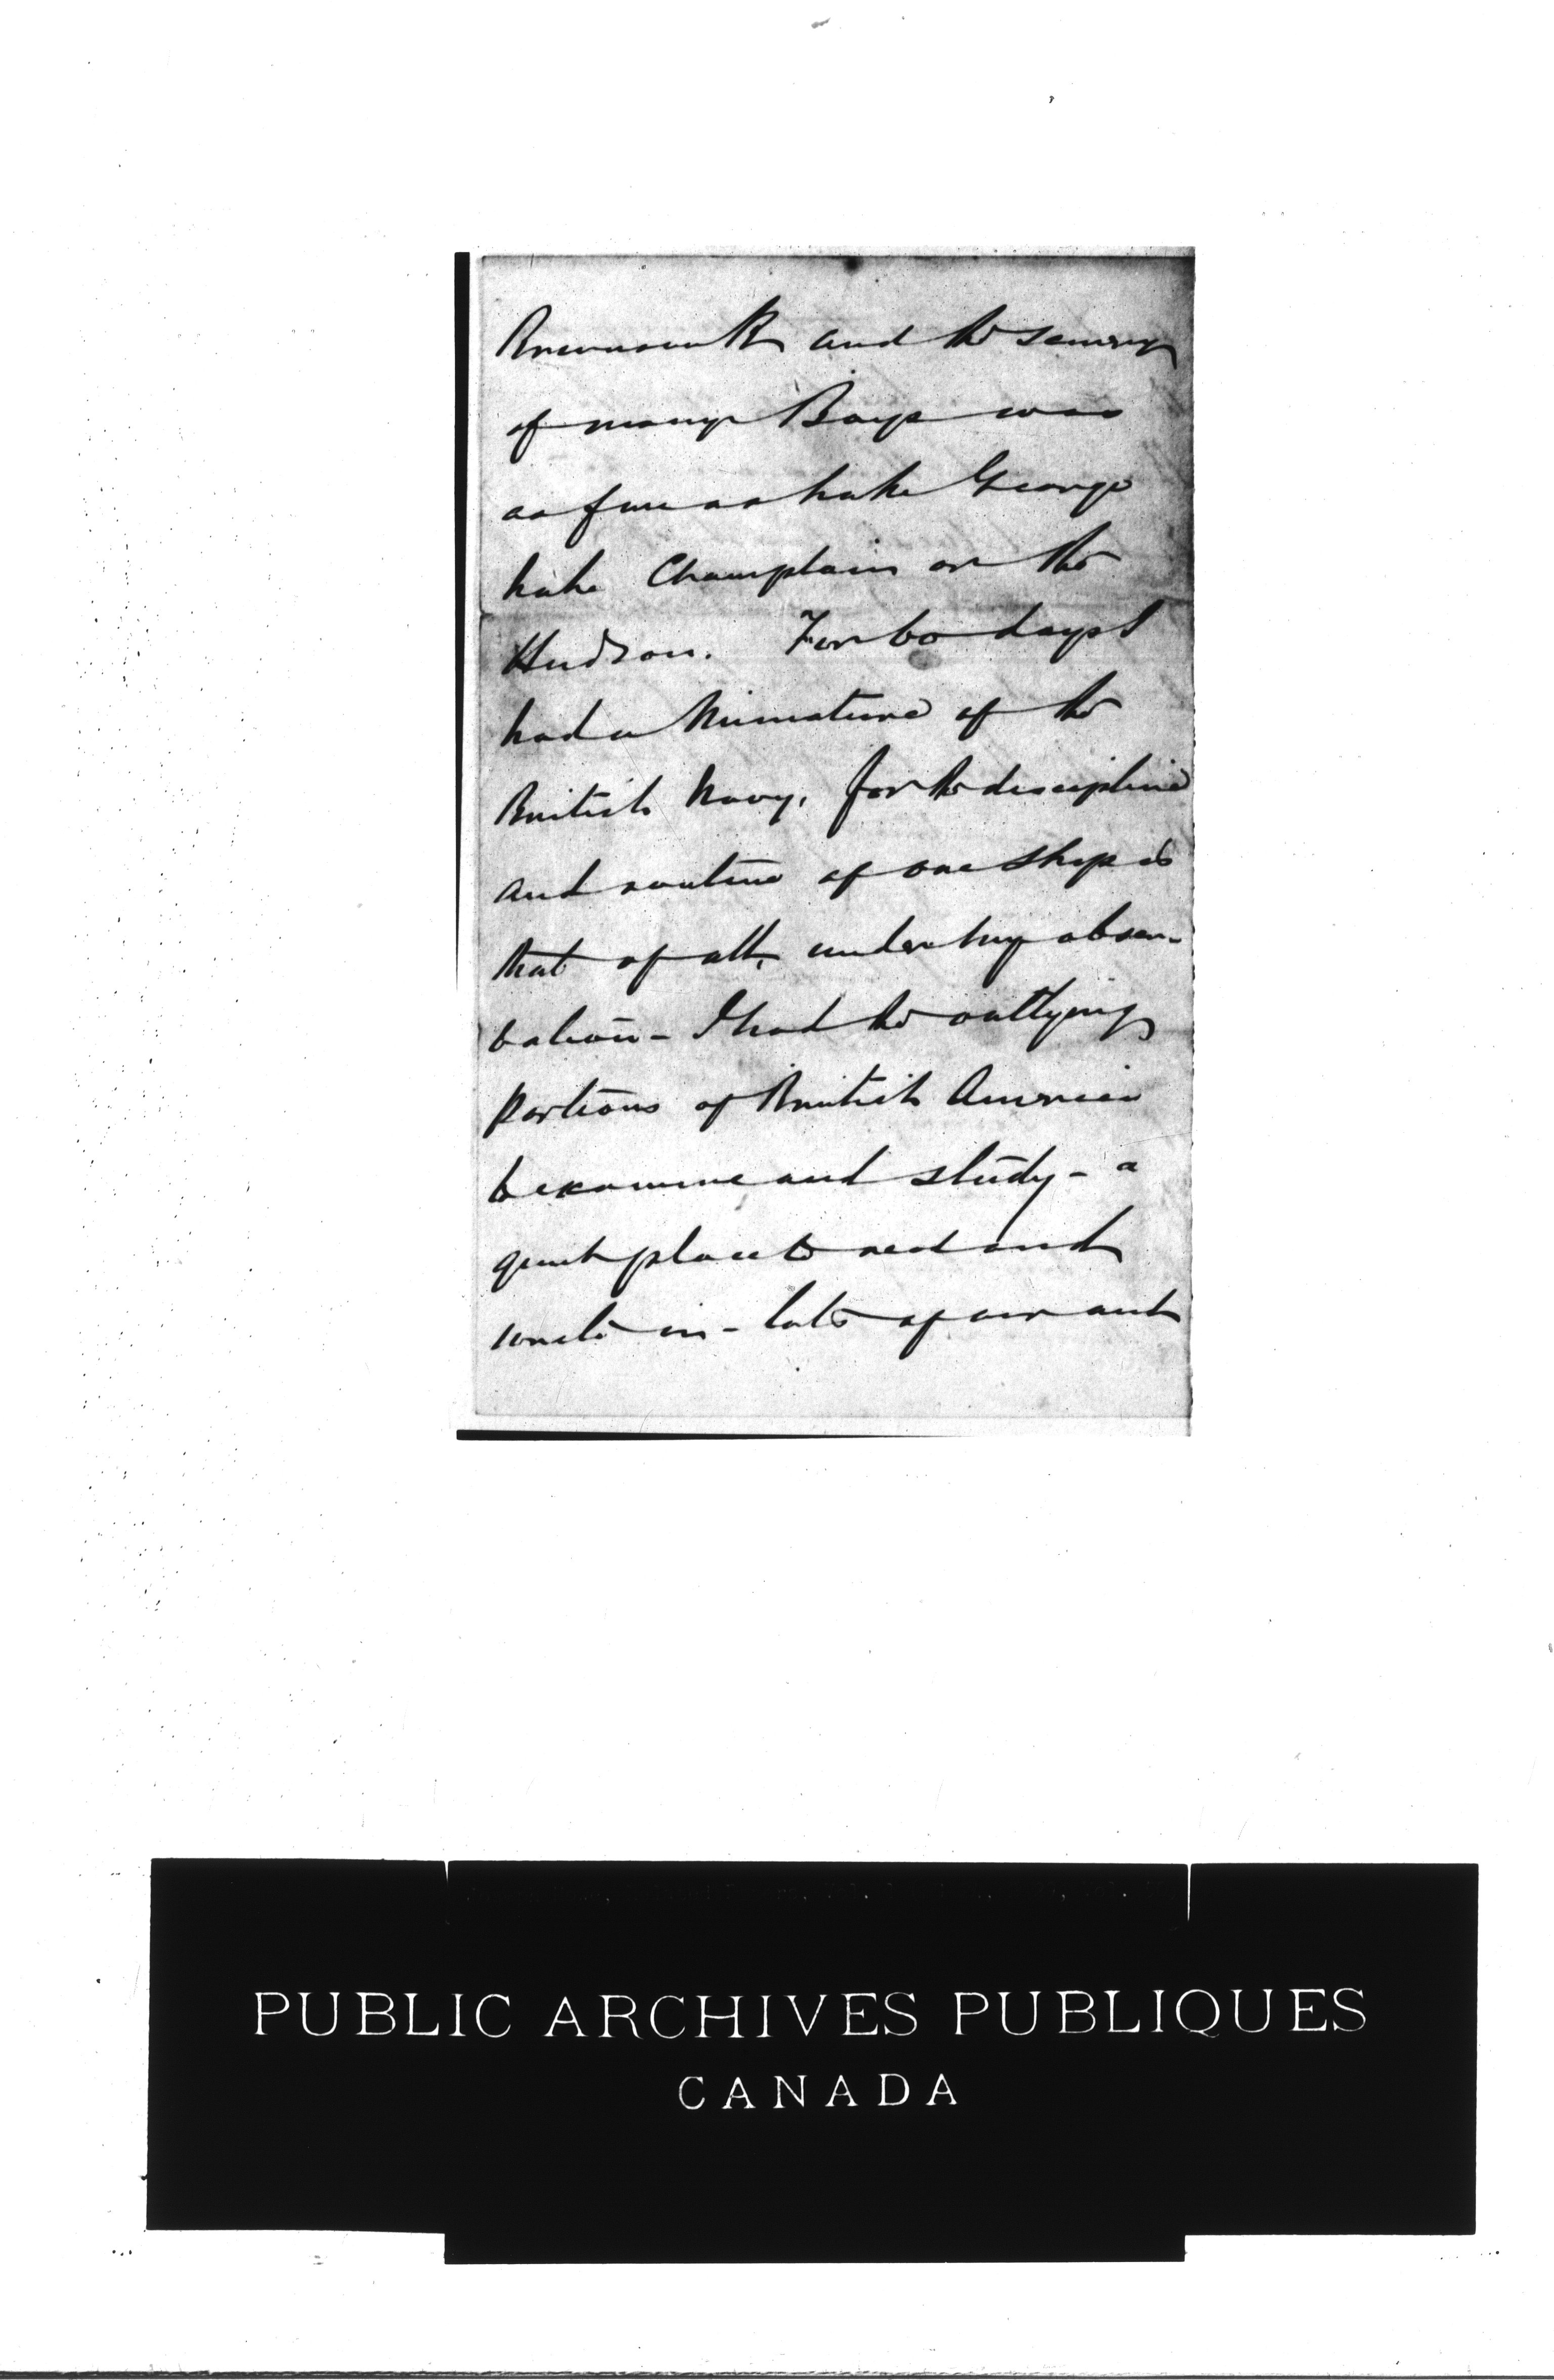 Brunswick and the scenery
of many Bays was
as fine as Lake George
Lake Champlain or the
Hudson. For 60 days I
had a Miniature of the
British Navy, for the discipline
and routine of one Ship is
that of all, under my obser-
vation - I had the outlying
portions of British America
to examine and study - a
quiet place to read and
write in - lots of air and
PUBLIC ARCHIVES PUBLIQUES
CANADA